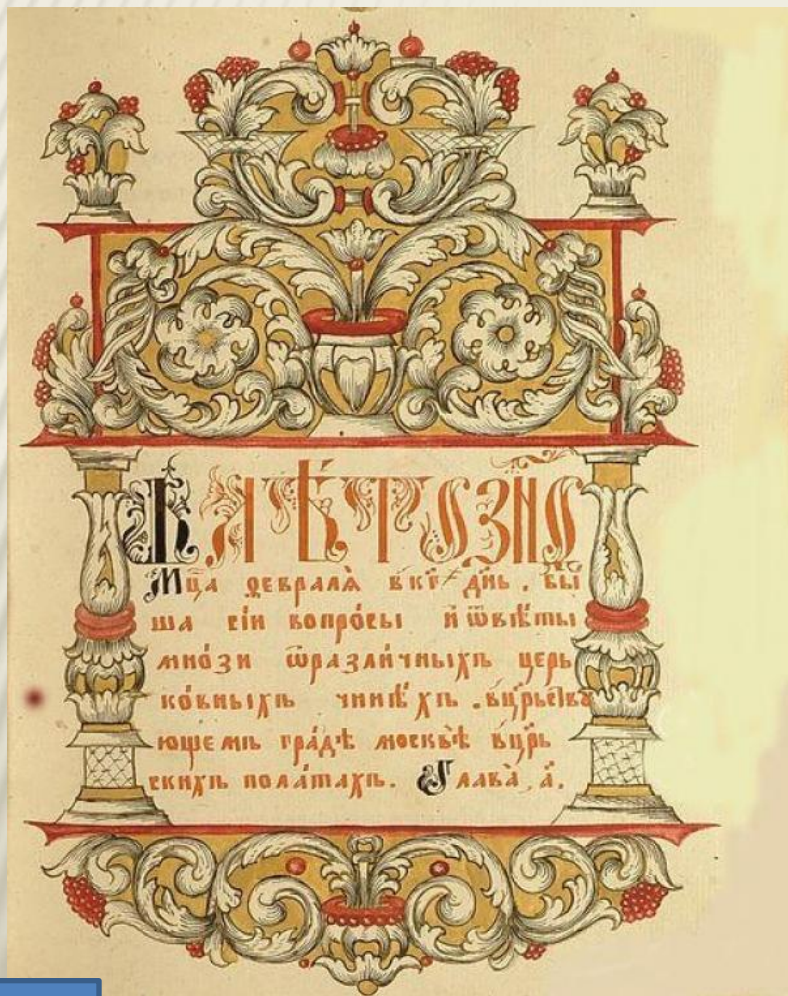 ВЛѢТОЗНѲ
Мц҃а ѳевралѧ̀ вкг҃ дн҃ь . бы
ша сіи вопро́сы и҆ ѿвѣты
мно́зи ѿразли́чныхъ церь
ко́вныхъ чинѣ́хъ . вцр҃ьствꙋ
ющемъ гра́дѣ москвѣ̀ вцр҃ь
скихъ пола́тахъ. Глава̀ , а҃ .